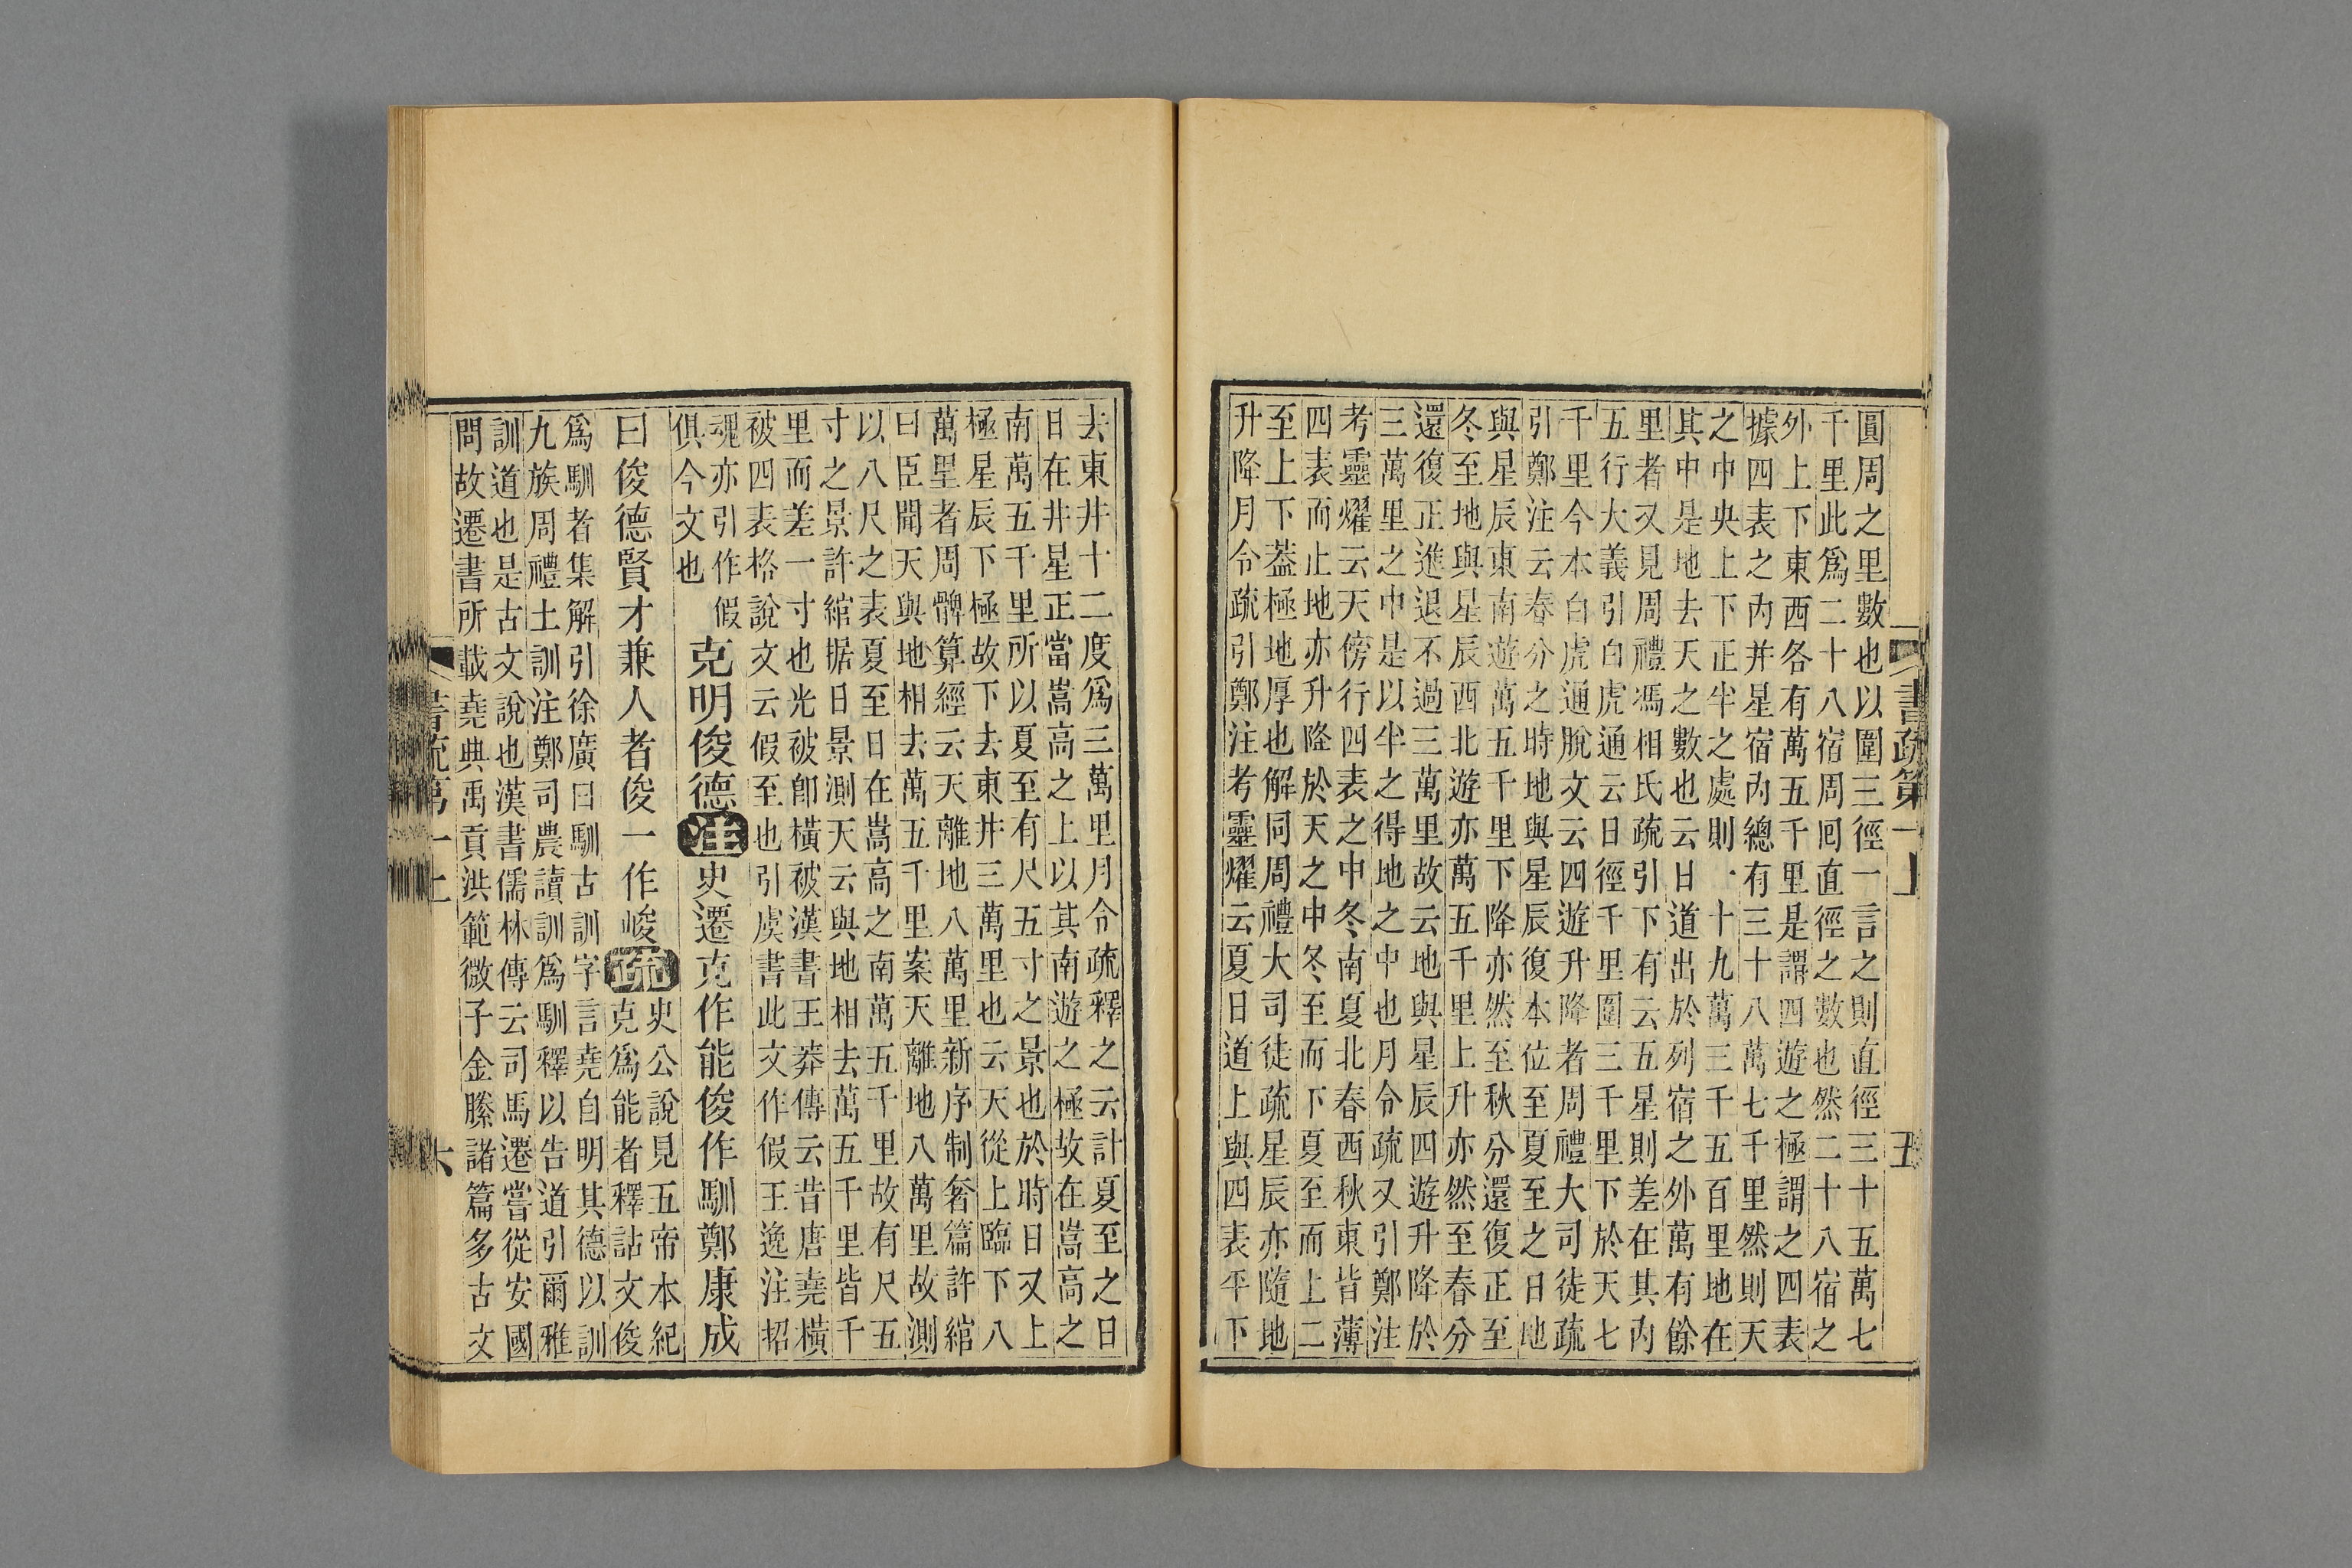 書疏第一上 五
圓周之里數也以圍三徑一言之則直徑三十五萬七
千里此爲二十八宿周回直徑之數也然二十八宿之
外上下東西各有萬五千里是謂四遊之極謂之四表
據四表之內并星宿內總有三十八萬七千里然則天
之中央上下正半之處則一十九萬三千五百里地在
其中是地去天之數也云日道出於列宿之外萬有餘
里者又見周禮馮相氏疏引下有云五星則差在其內
五行大義引白虎通云日徑千里圍三千里下於天七
千里今本白虎通脫文云四遊升降者周禮大司徒疏
引鄭注云春分之時地與星辰復本位至夏至之日地
與星辰東南遊萬五千里下降亦然至秋分還復正至
冬至地與星辰西北遊亦萬五千里上升亦然至春分
還復正進退不過三萬里故云地與星辰四遊升降於
三萬里之中是以半之得地之中也月令疏又引鄭注
考靈耀云天傍行四表之中冬南夏北春西秋東皆薄
四表而止地亦升降於天之中冬至而下夏至而上二
至上下蓋極地厚也解同周禮大司徒疏星辰亦隨地
升降月令疏引鄭注考靈耀云夏日道上與四表平下
去東井十二度爲三萬里月令疏釋之云計夏至之日
日在井星正當嵩高之上以其南遊之極故在嵩高之
南萬五千里所以夏至有尺五寸之景也於時日又上
極星辰下極故下去東井三萬里也云天從上臨下八
萬里者周髀算經云天離地八萬里新序制奢篇許綰
曰臣聞天與地相去萬五千里案天離地八萬里故測
以八尺之表夏至日在嵩高之南萬五千里故有尺五
寸之景許綰据日景測天云與地相去萬五千里皆千
里而差一寸也光被卽橫被漢書王莽傳云昔唐堯橫
被四表格說文云假至也引虞書此文作假王逸注招
魂亦引作假
俱今文也
克明俊德注史遷克作能俊作馴鄭康成
曰俊德賢才兼人者俊一作峻疏史公說見五帝本紀
克爲能者釋詁文俊
爲馴者集解引徐廣曰馴古訓字言堯自明其德以訓
九族周禮土訓注鄭司農讀訓爲馴釋以告道引爾雅
訓道也是古文說也漢書儒林傳云司馬遷嘗從安國
問故遷書所載堯典禹貢洪範微子金縢諸篇多古文
書疏第一上 六